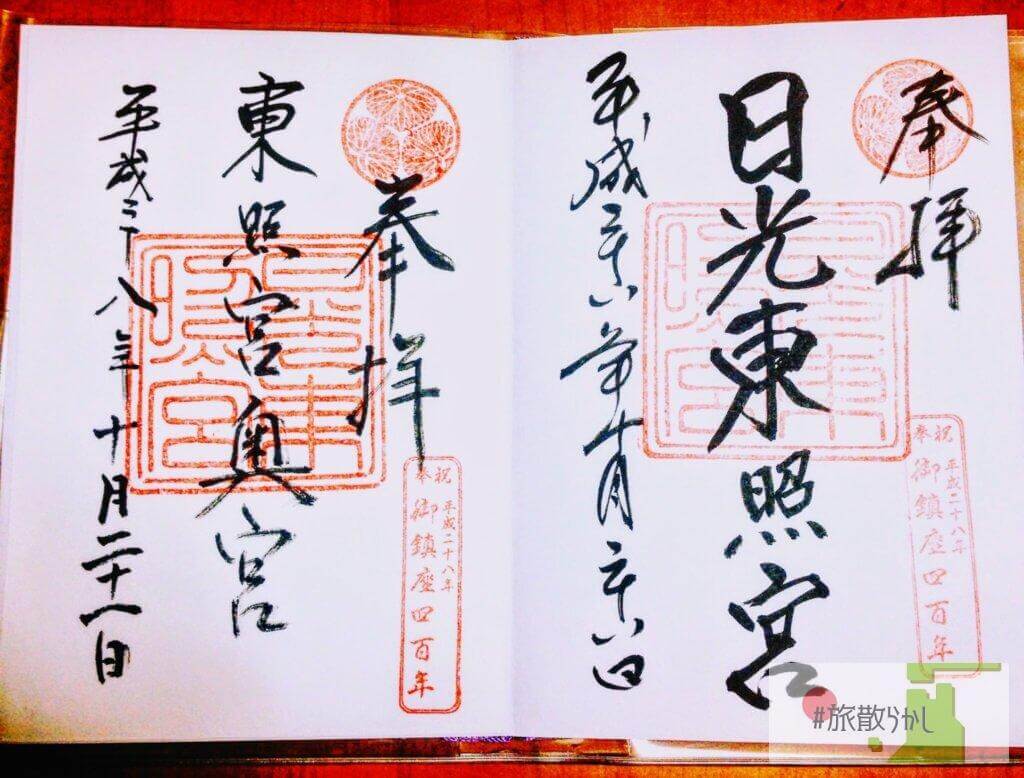 奉拝
日光東照宮
平成二十八年十月二十八日
奉祝
平成二十八年
御鎮座四百年
奉拝
東照宮奥宮
平成二十八年十月二十八日
奉祝
平成二十八年
御鎮座四百年
#旅散らかし